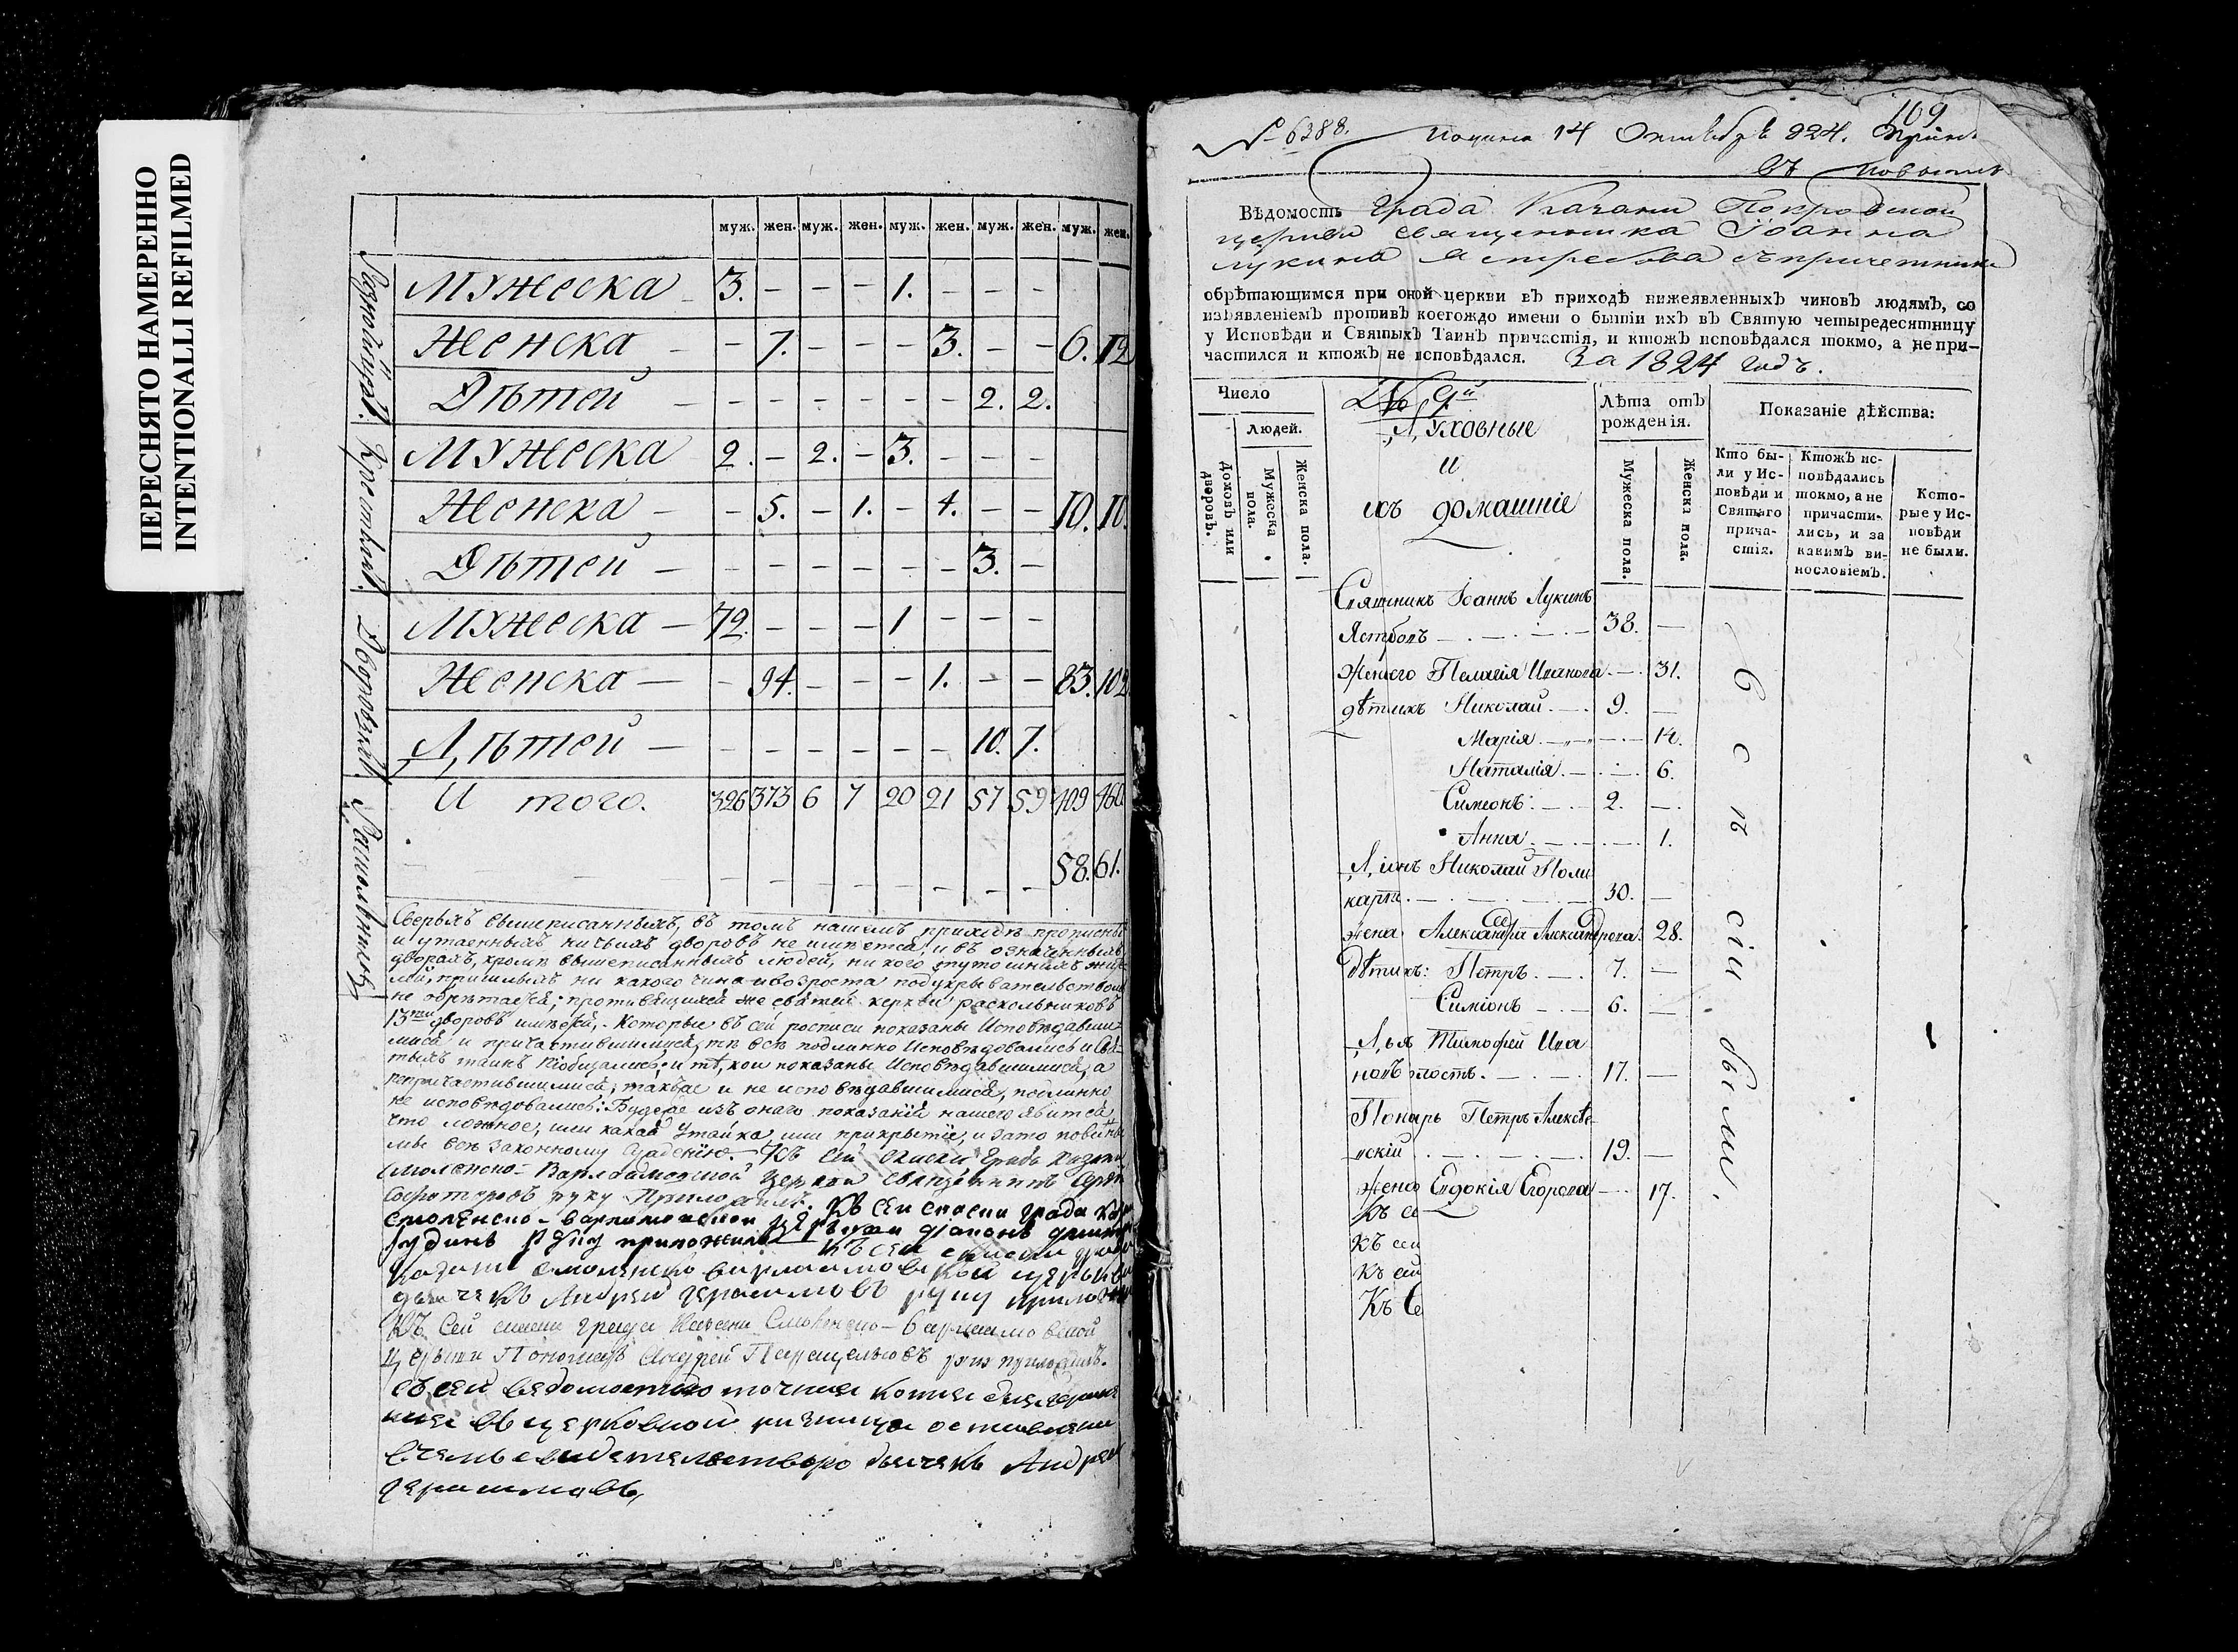 ПЕРЕСНЯТО НАМЕРЕННО
INTENTIONALLI REFILMED
муж. жен. муж. жен. муж. жен. муж. жен. муж. жен.
Мужеска 3. – – – 1. – – –
Женска – – 7. – – – 3. – – 6. 12
Дѣтей – – – – – – – 2. 2.
Мужеска 2. – 2. – 3. – – –
Женска – – 5. – 1. – 4. – – 10. 10.
Дѣтей – – – – – – – 3. –
Мужеска – 72. – – – 1 – – –
Женска – – 94. – – – 1. – – 83. 102
Дѣтей – – – – – – – 10. 7.
И того. 326 373 6 7 20 21 57 59 409 460
58. 61.
Дворовыхъ.
Сверьхъ вышеписанныхъ, въ томъ нашемъ приходѣ прописныхъ
и утаенныхъ ничьихъ дворовъ не имѣется, и въ означенныхъ
дворахъ, кромѣ вышеписанныхъ людей, ни кого
пришлыхъ ни какого чина и возроста подукрывательствомъ
не обрѣтается; противящихся же святей церкви раскольниковъ
дворовъ имѣется. Которые въ сей росписи показаны Исповѣдавши-
мися и причастившимися, тѣ всѣ подлинно Исповѣдовались и Свя-
тыхъ таинъ; и тѣ, кои показаны Исповѣдавшимися, а
непричастившимися; также и не исповѣдавшимися, подлинно
не исповѣдовались: Будеже изъ онаго показанія нашего явится
что ложное, или какая утайка, или прикрытіе, и за то повинны
мы всѣ законному сужденію. Къ сей описи града Казани
Смоленско-Варламовской церкви священникъ
руку приложилъ. Къ сей описи града
смоленско-варламовской церкви діаконъ
руку приложилъ Къ сей описи града
Казани смоленско варламовской церкви
дьячекъ Андрей Герасимовъ руку приложилъ
Къ сей описи града Казани Смоленско-Варламовской
церкви Пономарь Андрей руку приложилъ.
съ сей ведомостью точная копия
въ церковной ризнице оставлена
въ чемъ свидетельствую дьячекъ Андрей
Герасимовъ
169
№ 6388. 14 Октября 824.
Вѣдомость Града Казани Покровской
церкви священника Іоанна
Лукина Ястребова съ причетники
обрѣтающимся при оной церкви въ приходѣ нижеявленныхъ чиновъ людямъ, со
изъявленіемъ противъ коегождо имени о бытіи ихъ въ Святую четыредесятницу
у Исповѣди и Святыхъ Таинъ причастія, и ктожъ исповѣдался токмо, а непри-
частился и ктожъ не исповѣдался. За 1824 годъ.
Число
Людей.
Домовъ или дворовъ.
Мужеска пола.
Женска пола.
Духовные
и
ихъ домашніе
Лѣта отъ рожденія.
Мужеска пола.
Женска пола.
Показаніе дѣйства:
Кто бы-
ли у Ис-
повѣди и
Святаго
прича-
стія.
Ктожъ ис-
повѣдались
токмо, а не
причасти-
лись, и за
какимъ ви-
нословіемъ.
Кото-
рые у Ис-
повѣди
не были.
Іоаннъ Лукинъ
38. —
жена его Пелагія Иванова 31.
дѣти ихъ Николай 9. —
Марія 14.
Наталія 6.
Симеонъ 2. —
Анна 1.
Николай Поли
карп 30. —
жена Александра Александрова 28.
Дѣти ихъ: Петръ 7. —
Симіонъ 6. —
Тимофей Ива
новъ холостъ. 17. —
Понарь Петръ Алексѣе-
вскій 19. —
жена Евдокія Егорова 17.
в с ѣ сіи были.
Къ се
къ сей
къ сей
Къ Се